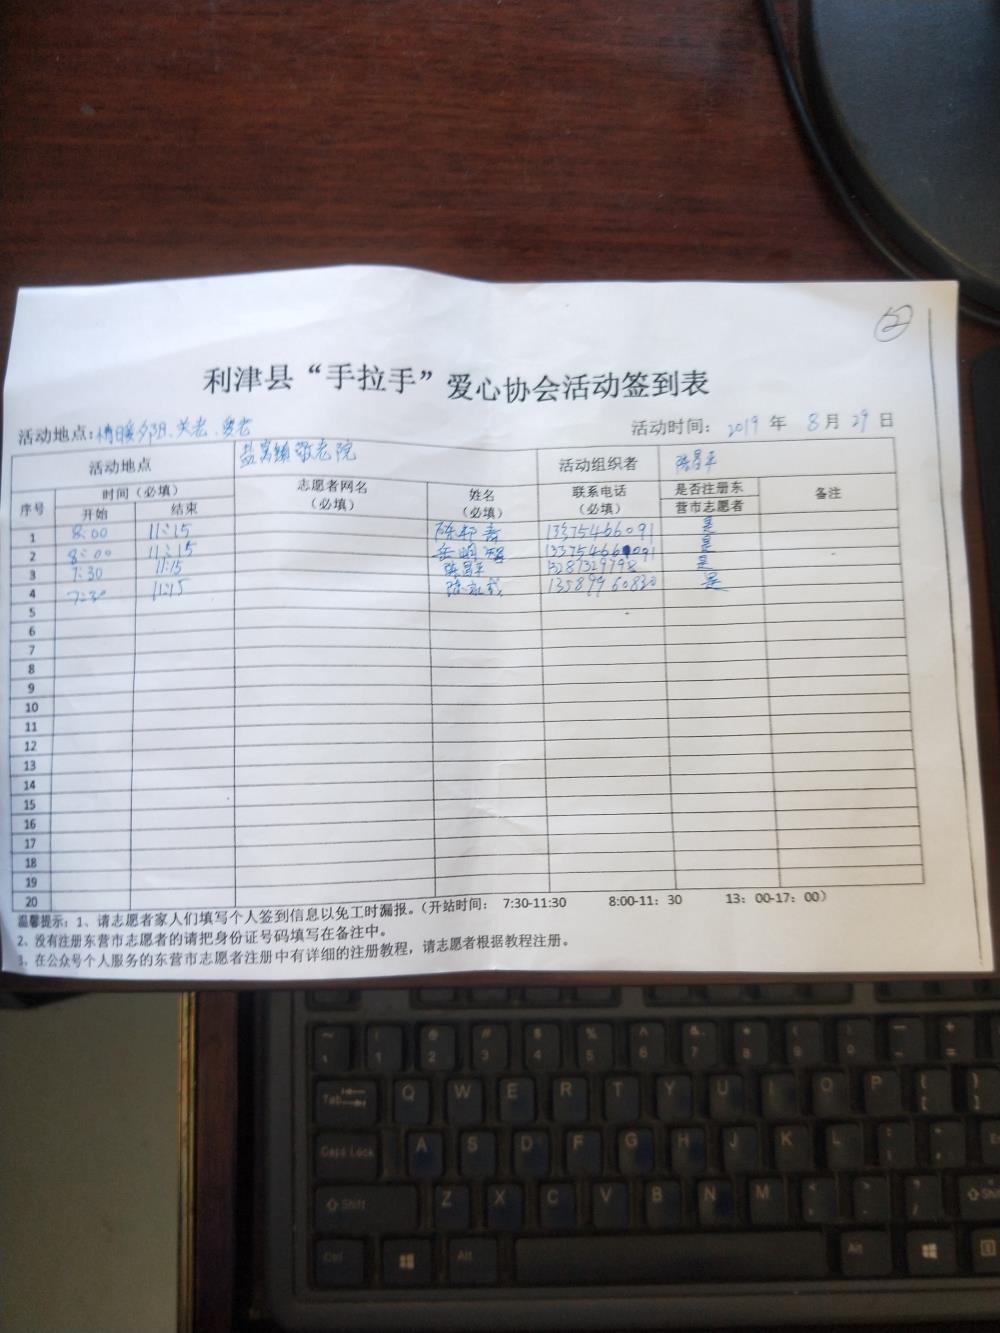 ②
利津县“手拉手”爱心协会活动签到表
活动地点:情暖夕阳、关老、爱老 活动时间: 2019 年 8月 29 日
活动地点 盐窝镇敬老院 活动组织者 陈昌平
序号 时间（必填） 志愿者网名（必填） 姓名（必填） 联系电话（必填） 是否注册东营市志愿者 备注
开始 结束
1 8:00 11:15 13375466091 是
2 8:00 11:15 岳明 是
3 7:30 11:15 陈昌平 13287329798 是
4 7:30 11:15 陈 13589960830 是
5
6
7
8
9
10
11
12
13
14
15
16
17
18
19
20
温馨提示: 1、请志愿者家人们填写个人签到信息以免工时漏报。（开站时间: 7:30-11:30 8:00-11: 30 13: 00-17: 00）
2、没有注册东营市志愿者的请把身份证号码填写在备注中。
3、在公众号个人服务的东营市志愿者注册中有详细的注册教程，请志愿者根据教程注册。
Tab Q W E R T Y U I O P
Caps Lock A S D F G H J K L
Shift Z X C V B N M
Ctrl Alt Alt